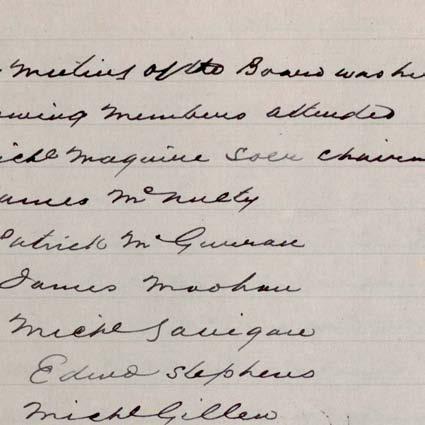 Meeting of the Board was he
owing Members attended
ichl Maguire Soer Chairm
ames McNulty
Patrick McGurran
James Moohan
Michl Gavigan
Edwd Stephens
Michl Gillen